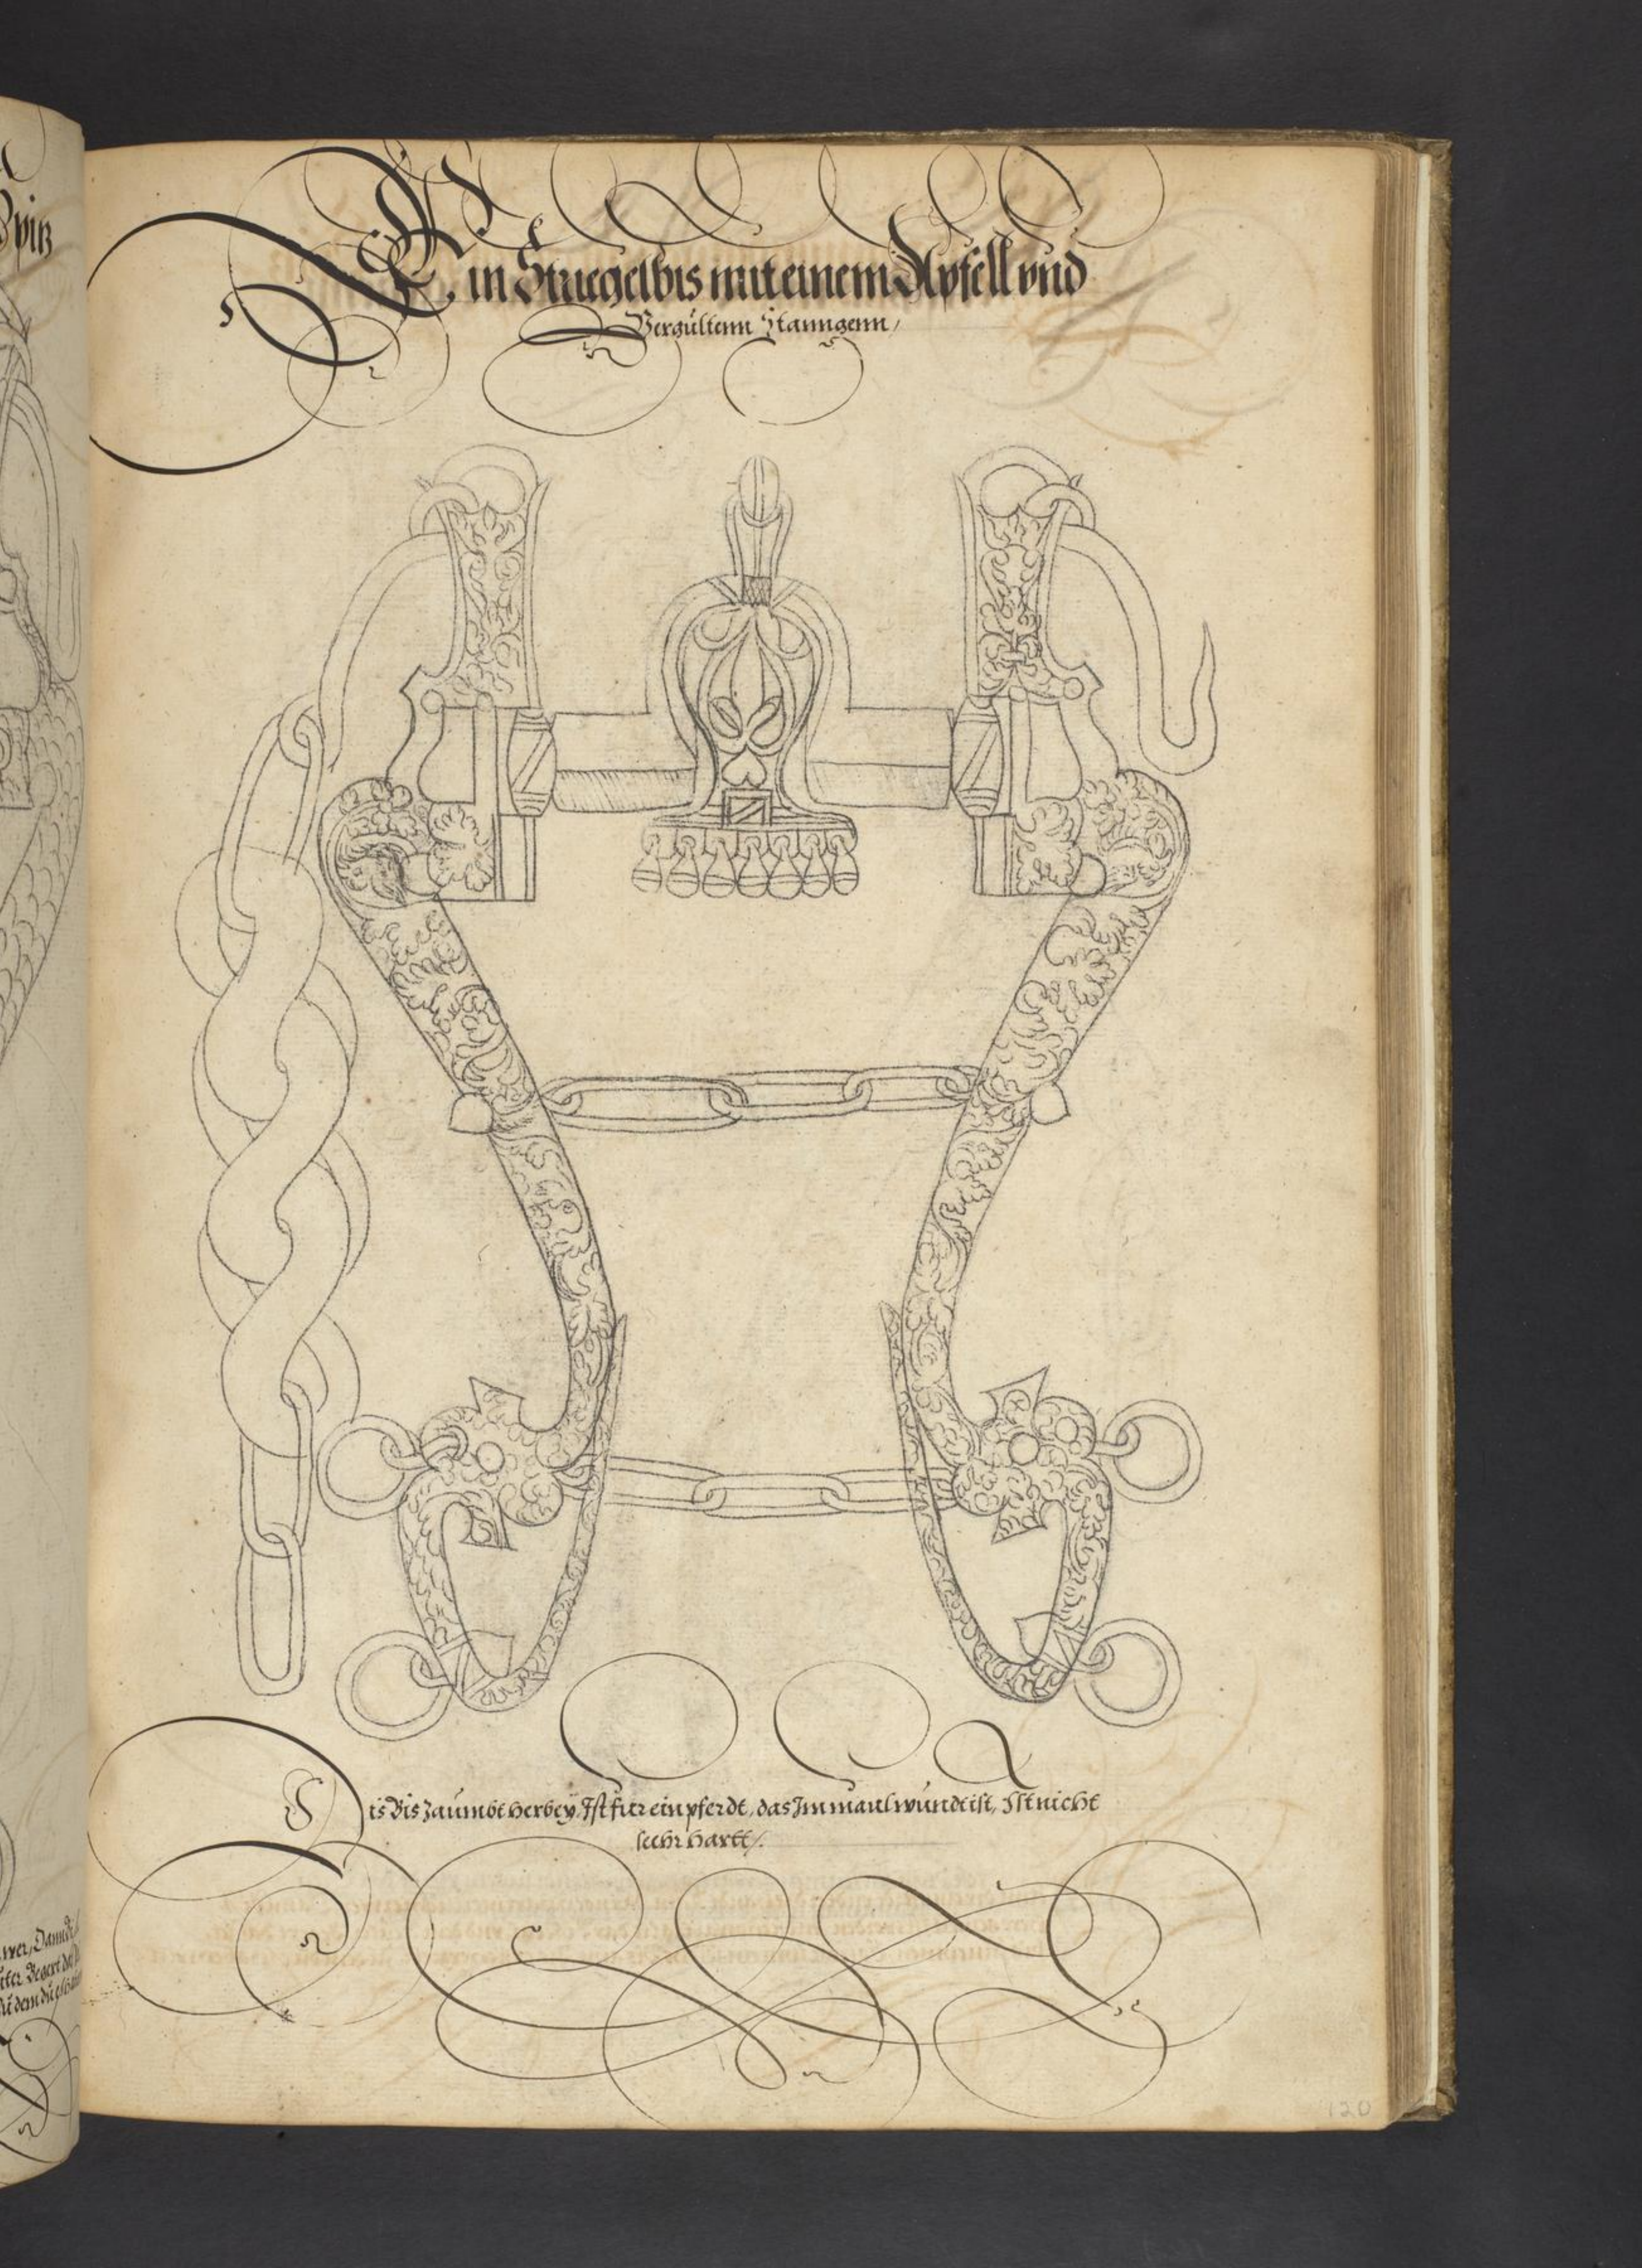 Ein Striegelbis mit einem Apfell vnd
Vergültenn Stanngenn,
Dis Bis Zaumbt herbey, Ist für ein pferdt, das Im maul wundt ist, Ist nicht
seehr hartt.
120